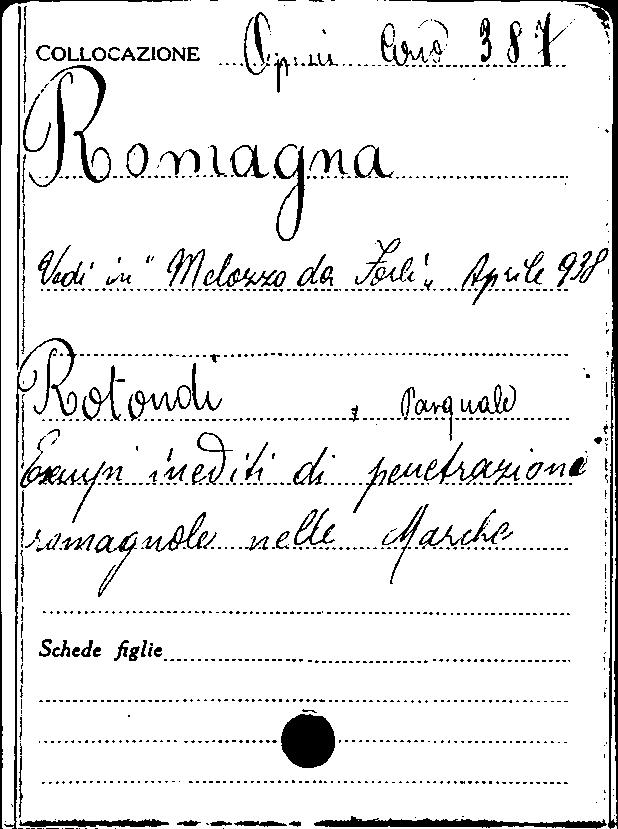 COLLOCAZIONE Opusc 387
Romagna
Vedi in "Melozzo da Forlì" Aprile 938
Rotondi, Pasquale
Esempi inediti di penetrazione
romagnole nelle Marche
Schede figlie